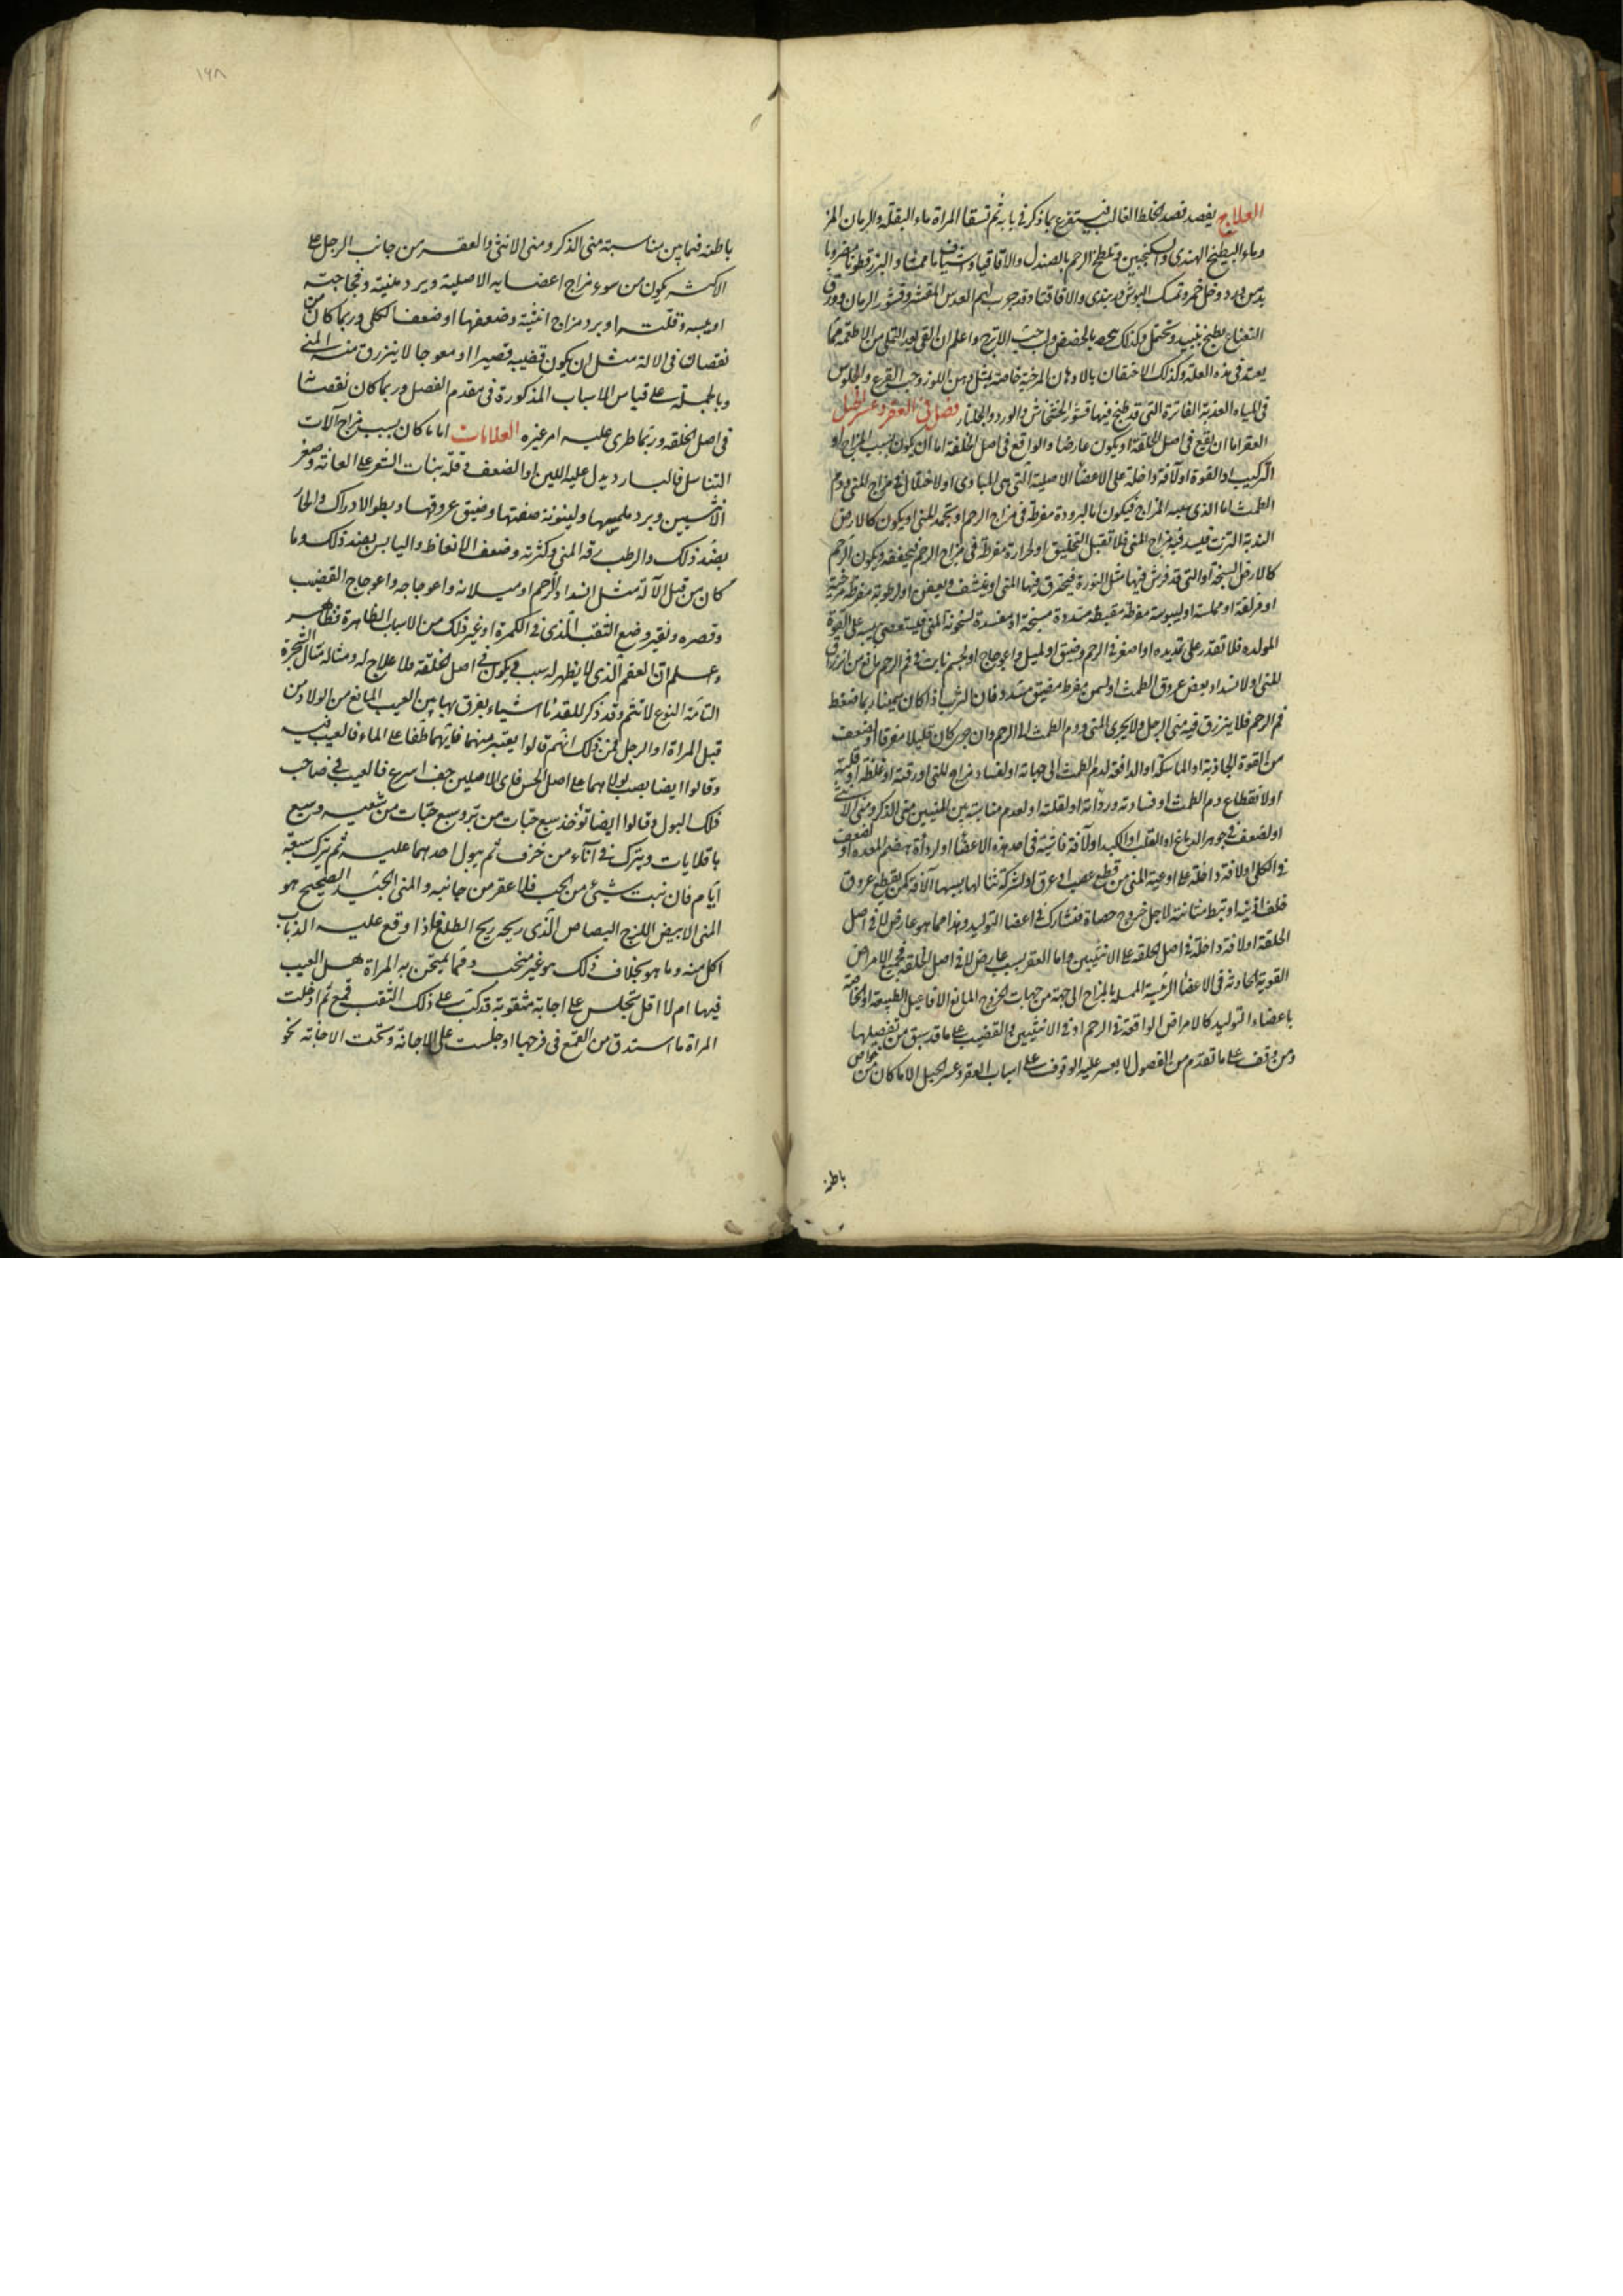 العلاج يقصد قصد الخلط الغالب فيستفرغ بما ذكر في بابه ثم تسقا المراة ماء البقلة والرمان المز
وماء البطيخ الهندى والسكنجبين وتلطخ الرحم بالصندل والاقاقيا وشياف ماميثا والبزرقطونا مضروبا
بدهن ورد وخل خمر وتمسك والاقاقيا وقد جرب لهم العدس المقشر وقشور الرمان وورق
النعناع يطبخ بنبيذ وتحتمل وكذلك بالحضض ولب الاترج واعلم ان القى بعد التملى من الاطعمة مما
يعتد في هذه العلة وكذلك الاحتقان بالادهان المرخية خاصة مثل دهن اللوز وحب القرع والجلوس
في المياه العذبة الفاترة التى قد طبخ فيها قشور الخشخاش والورد والجلنار فصل في العقر وعسر الحبل
العقر اما ان يقع في اصل الخلقة او يكون عارضا والواقع في اصل الخلقة اما ان يكون بسبب المزاج او
التركيب او القوة او لآفة داخلة على الاعضا الاصلية التى هى المبادى او لاختلال في مزاج المنى ودم
الطمث اما الذى بسبب المزاج فيكون اما لبرودة مفرطة في مزاج الرحم او تجمد المنى او يكون كالارض
الندية النزت فليسد فيه مزاج المنى فلا تقبل التخليق او لحرارة مفرطة في مزاج الرحم فيجففه ويكون الرحم
كالارض السبخة او التى قد فرش فيها مثل النورة فيحترق فيها المنى او ينشف ويعفن او لرطوبة مفرطة مرخية
او مزلقة او مملسة او ليبوسة مفرطة مقبضة مشددة مسخنة او مفسدة لسخونة المنى فليستعصى بيبسه على القوة
المولده فلا تقدر على تمديده او لصغر في الرحم وضيق او لميل واعوجاج او لجسم نابت في فم الرحم مانع من انزراق
المنى او لانسداد بعض عروق الطمث او لسمن مفرط مضيق مسدد فان الثرب اذا كان سمينا ربما ضغط
فم الرحم فلا ينزرق فيه منى الرجل ولا يجرى المنى ودم الطمث الى الرحم وان جرى كان قليلا متفرقا او لضعف
من القوة الجاذبة او الماسكة او الدافعة لدم الطمث الى جهاته او لفساد مزاج المنى او رقته او غلظه او قلته
او لانقطاع دم الطمث او فساده ورداته او لقلته او لعدم مناسبة بين المنيين منى الذكر ومنى الانثى
او لضعف في جوهر الدماغ او القلب او الكبد او لآفة في احد هذه الاعضا او لرداة هضم المعده او لضعف
في الكلى او لافة داخلة على اوعية المنى من قطع عصب او عرق او لشركة تنالها بسببها آلافة كمن يقطع عروق
خلف اذنيه او تبط مثانته لاجل خروج حصاة فتشارك في اعضا التوليد وهذا مما هو عارض لا في اصل
الخلقة او لافة داخلة في اصل الخلقة على الانثيين واما العقر بسبب عارض لا في اصل الخلقة فجميع الامراض
القوية الحادثة في الاعضا الرئيسة المميلة بالمزاج الى جهة من جهات الخروج المانع الافاعيل الطبيعة او الخاصة
باعضاء التوليد كالامراض الواقعة في الرحم او في الانثيين او القضيب على ما قد سبق من تفصيلها
ومن وقف على ما تقدم من الفصول لا يعسر عليه الوقوف على اسباب العقر وعسر الحبل الا ما كان من خواص
باطنه
١٩٨
باطنه فيما بين مناسبة منى الذكر ومنى الانثى والعقر من جانب الرجل على
الاكثر يكون من سوء مزاج اعضايه الاصلية وبرد منيته وفجاجته
او يبسه وقلته او برد مزاج انثيته وضعفها او ضعف الكلى وربما كان من
نقصان في الالة مثل ان يكون قضيبه قصيرا او معوجا لا ينزرق منه المنى
وبالجملة على قياس الاسباب المذكورة في مقدم الفصل وربما كان نقصا
في اصل الخلقه وربما طرى عليه امر غيره العلامات اما ما كان بسبب مزاج آلات
التناسل فالبارد يدل عليه اللين او الضعف وقلة بنات الشعر على العانة وصغر
الانثيين وبرد ملمسها ولينونة صفتها وضيق عروقها وبطو الادراك والحار
بضد ذلك والرطب رقه المنى وكثرته وضعف الانعاظ واليابس بضد ذلك وما
كان من قبل الآلة مثل انسداد الرحم او ميلانه واعوجاجه واعوجاج القضيب
وقصره وتغير وضع الثقب الذى في الكمرة او غير ذلك من الاسباب الظاهرة فظاهر
واعلم ان العقم الذى لا يظهر له سبب في يكون في اصل الخلقة فلا علاج له ومثاله مثال الشجرة
التامة النوع لا تثم وقد ذكر للمقدما اشياء يفرق بها بين العيب المانع من الولاد من
قبل المراة او الرجل فمن ذلك انهم قالوا يعتبر منهما فايهما طفا على الماء فالعيب فيه
وقالوا ايضا يصب بولاهما على اصل الخس فاى الاصلين جف اسرع فالعيب في صاحب
ذلك البول وقالوا ايضا تؤخذ سبع حبات من بر وسبع حبات من شعير وسبع
باقلايات ويترك في آناء من خزف ثم يبول احدهما عليه ثم يترك سبعة
ايام فان نبت شئ من الحب فلا عقر من جانبه والمنى الجيد الصحيح هو
المنى الابيض اللزج البصاص الذى ريحه ريح الطلع فاذا وقع عليه الذباب
اكل منه وما هو بخلاف ذلك هو غير منجب ومما يمتحن به المراة هل العيب
فيها ام لا اقل تجلس على اجانة مثقوبة قد كبت على ذلك الثقب قمع ثم ادخلت
المراة ما استدق من القمع في فرجها او جلست على الاجانة وتحت الاجانة نحو